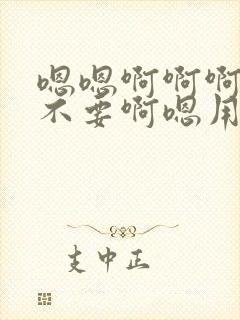 嗯嗯啊啊啊
不要啊嗯用
支中正